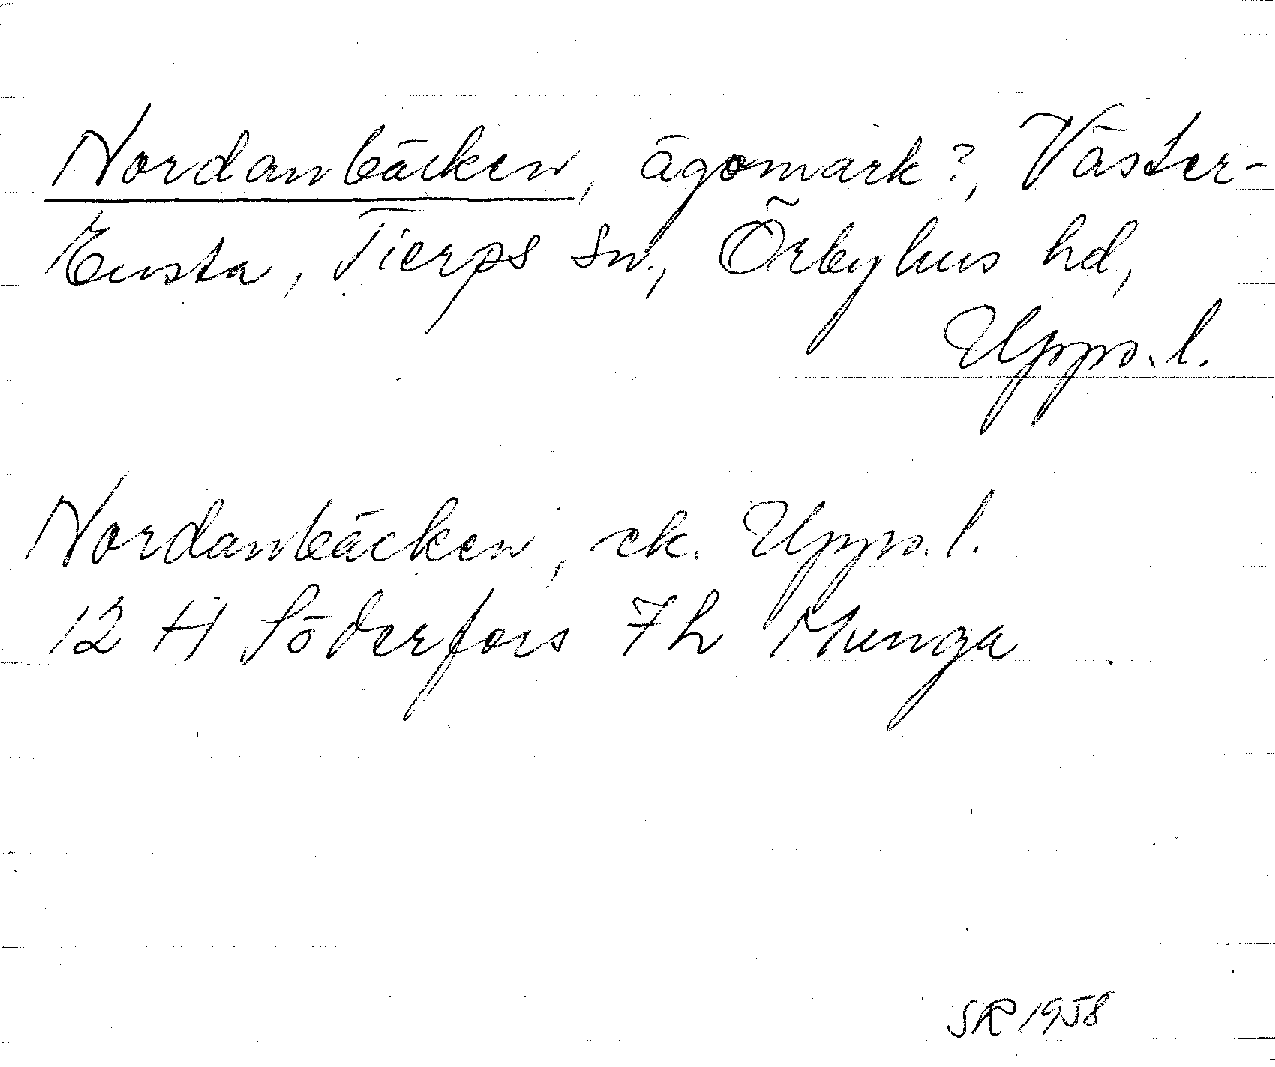 Nordanbäcken, ägomark?, Väster-
Ensta, Tierps sn, Örbyhus hd,
Upps. l.
Nordanbäcken, ek. Upps. l.
12 H Söderfors 7 h Munga
SR 1958